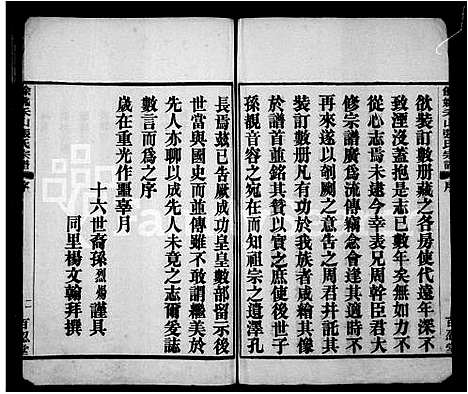 欲裝訂數册藏之各房使代遠年深不
致湮沒蓋抱是志已數年矣無如力不
從心志焉未逮今幸表兄周幹臣君代
修宗譜廣為流傳竊念會逢其適時不
可失遂以剞劂之意告之周君并託其
裝訂數册凡有功於我族者咸繪其像
於譜首並銘其贊以寶之庶使後世子
孫覩音容之宛在而知祖宗之遺澤孔
長焉茲已告厥成功皇皇數部留示後
世當與國史而並傳雖不敢謂繼美於
先人亦聊以成先人未竟之志爾爰誌
數言而為之序
歲在重光作噩辜月
十六世裔孫烈煬謹具
同里楊文翰拜撰
山張氏宗譜
序
二
百忍堂